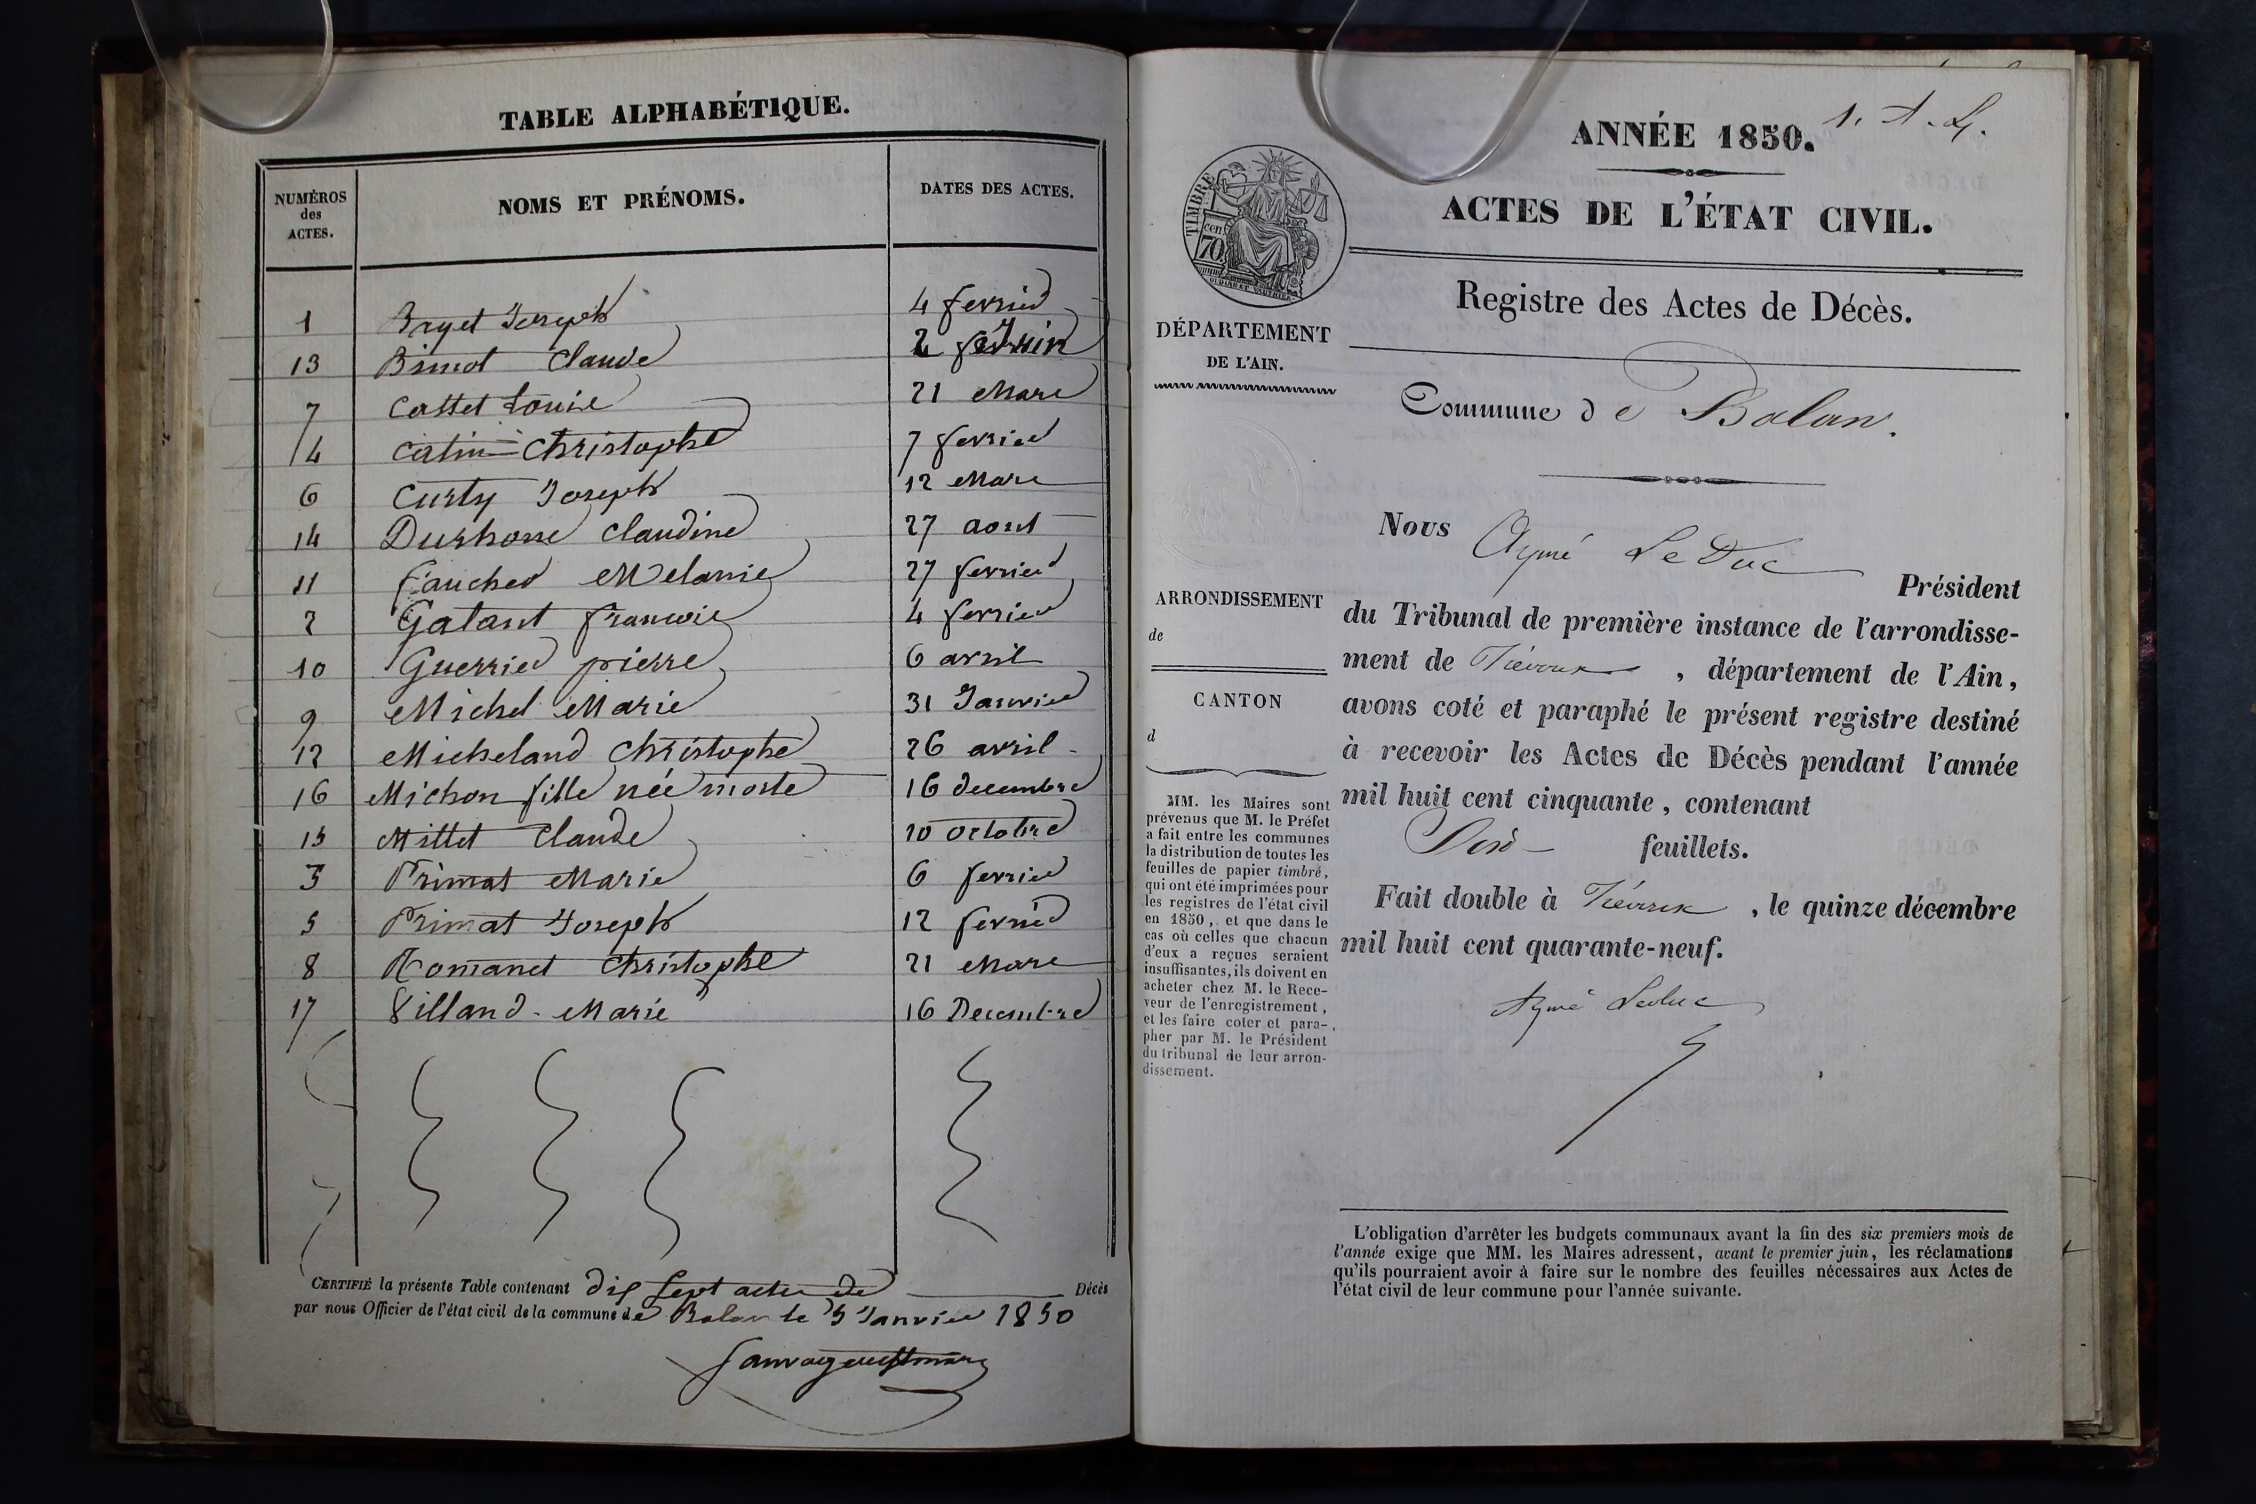 TABLE ALPHABÉTIQUE.
NUMÉROS des ACTES. NOMS ET PRÉNOMS. DATES DES ACTES.
1 Bryet Joseph 4 fevrier
13 Claude 2 Juin
7 Cattet Louise 21 Mars
4 Catin Christophe 7 fevrier
6 Curty Joseph 12 Mars
14 Claudine 27 aout
11 faucher Melanie 27 fevrier
2 Galant francois 4 fevrier
10 Guerrier pierre 6 avril
9 Michel Marie 31 Janvier
12 Micheland Christophe 26 avril
16 Michon fille née morte 16 decembre
15 Millet Claude 10 octobre
3 Primat Marie 6 fevrier
5 Primat Joseph 12 fevrier
8 Romanet Christophe 21 Mars
17 Villand Marie 16 Decembre
CERTIFIÉ la présente Table contenant dix Sept actes de Décès
par nous Officier de l'état civil de la commune de Balan le 5 Janvier 1850
1.
ANNÉE 1850.
ACTES DE L'ÉTAT CIVIL.
TIMBRE
70 cen
Registre des Actes de Décès.
DÉPARTEMENT
DE L'AIN.
Commune de Balan.
Nous Aymé Le Duc Président
du Tribunal de première instance de l'arrondisse-
ment de Trévoux , département de l'Ain,
avons coté et paraphé le présent registre destiné
à recevoir les Actes de Décès pendant l'année
mil huit cent cinquante, contenant
feuillets.
Fait double à Trévoux , le quinze décembre
mil huit cent quarante-neuf.
Aymé Leduc
ARRONDISSEMENT
de
CANTON
d
MM. les Maires sont
prévenus que M. le Préfet
a fait entre les communes
la distribution de toutes les
feuilles de papier timbré,
qui ont été imprimées pour
les registres de l'état civil
en 1850, et que dans le
cas où celles que chacun
d'eux a reçues seraient
insuffisantes, ils doivent en
acheter chez M. le Rece-
veur de l'enregistrement,
et les faire coter et para-
pher par M. le Président
du tribunal de leur arron-
dissement.
L'obligation d'arrêter les budgets communaux avant la fin des six premiers mois de
l'année exige que MM. les Maires adressent, avant le premier juin, les réclamations
qu'ils pourraient avoir à faire sur le nombre des feuilles nécessaires aux Actes de
l'état civil de leur commune pour l'année suivante.